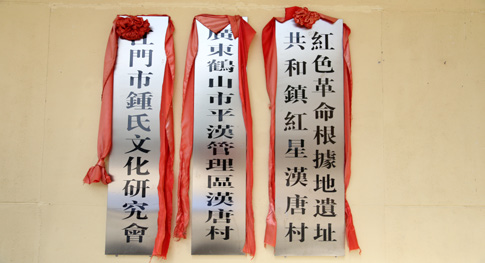 紅色革命根據地遺址
共和鎮紅星漢唐村
廣東鶴山市平漢管理區漢唐村
江門市鍾氏文化研究會